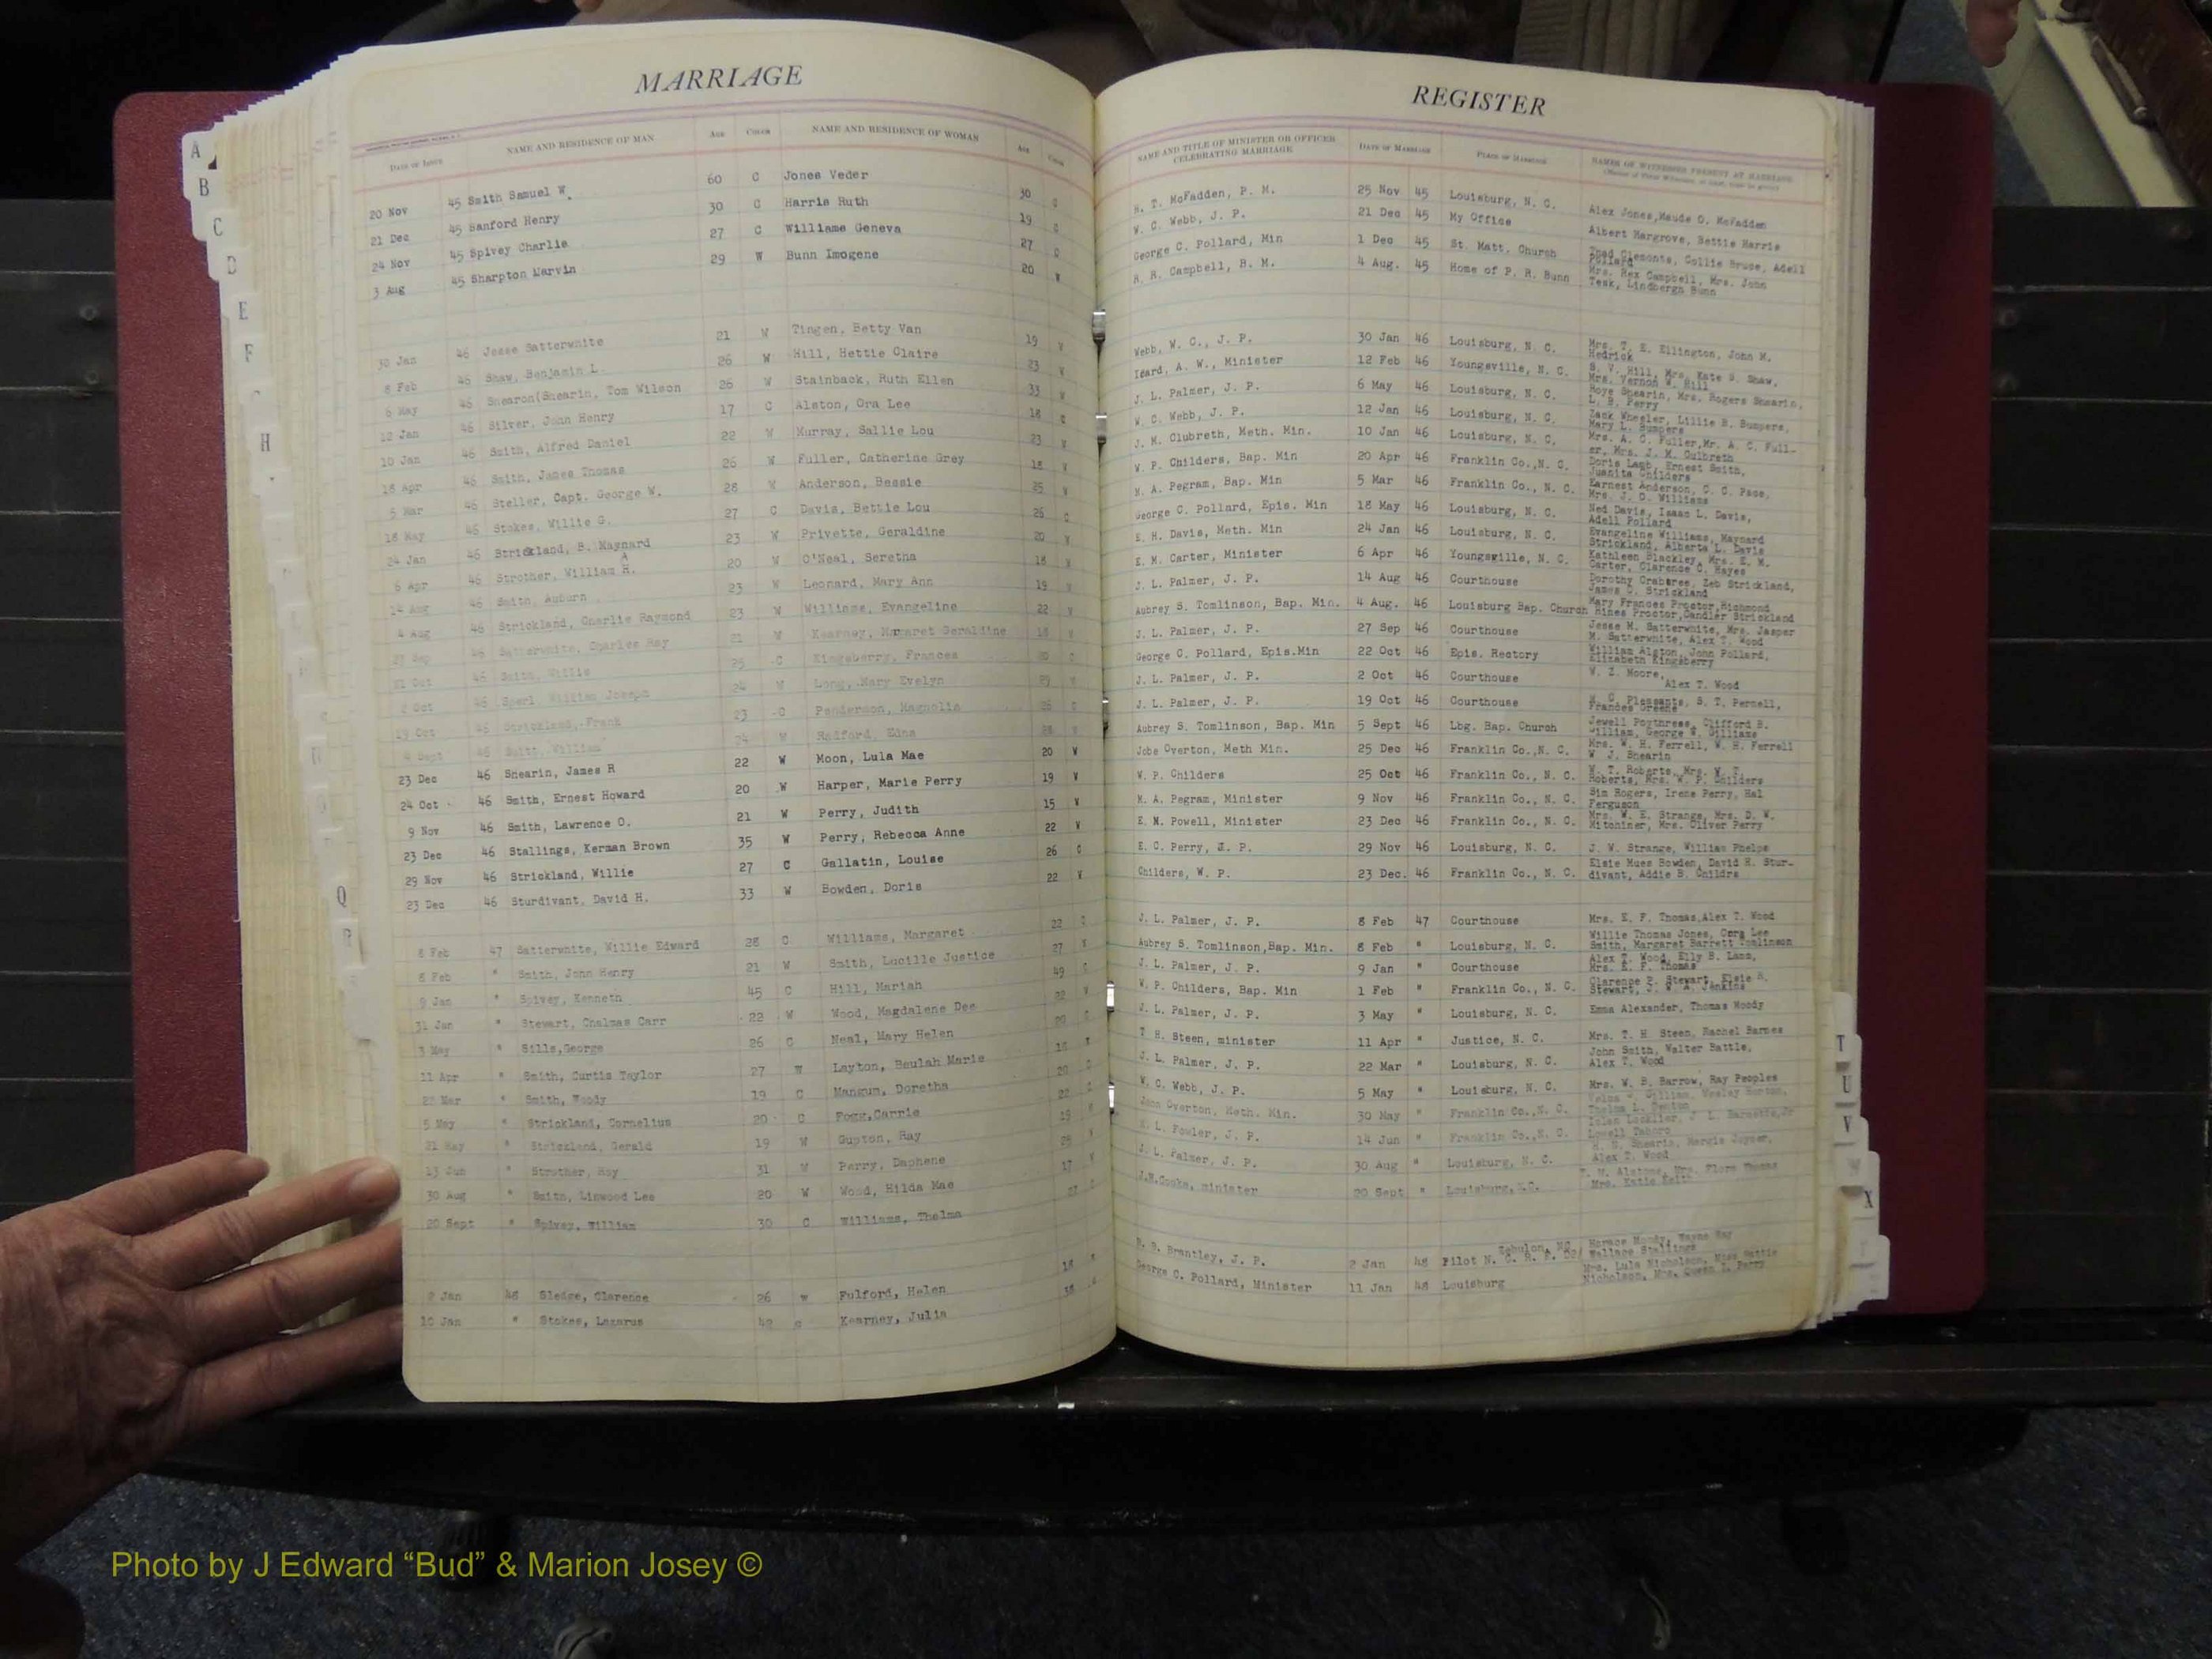 MARRIAGE
DATE OF ISSUE NAME AND RESIDENCE OF MAN AGE COLOR NAME AND RESIDENCE OF WOMAN AGE COLOR
20 Nov 45 Smith Samuel W. 60 C Jones Veder 30 C
21 Dec 45 Sanford Henry 30 C Harris Ruth 19 C
24 Nov 45 Spivey Charlie 27 C Williams Geneva 27 C
3 Aug 45 Sharpton Marvin 29 W Bunn Imogene 20 W
30 Jan 46 Jesse Satterwhite 21 W Tingen, Betty Van 19 W
8 Feb 46 Shaw, Benjamin L. 26 W Hill, Hettie Claire 23 W
6 May 46 Shearon(Shearin, Tom Wilson 26 W Stainback, Ruth Ellen 33 W
12 Jan 46 Silver, John Henry 17 C Alston, Ora Lee 18 C
10 Jan 46 Smith, Alfred Daniel 22 W Murray, Sallie Lou 23 W
18 Apr 46 Smith, James Thomas 26 W Fuller, Catherine Grey 18 W
5 Mar 46 Steller, Capt. George W. 28 W Anderson, Bessie 25 W
18 May 46 Stokes, Willie G. 27 C Davis, Bettie Lou 26 C
24 Jan 46 Strickland, B. Maynard 23 W Privette, Geraldine 20 W
6 Apr 46 Strother, William H. 20 W O'Neal, Seretha 18 W
14 Aug 46 Smith, Auburn 23 W Leonard, Mary Ann 19 W
4 Aug 46 Strickland, Charlie Raymond 23 W Williams, Evangeline 22 W
27 Sep 46 Satterwhite, Charles Ray 21 W Kearney, Margaret Geraldine 18 W
21 Oct 46 Smith, Willie 25 C Kingsberry, Frances 20 C
2 Oct 46 William Joseph 24 W Long, Mary Evelyn 29 W
19 Oct 46 Strickland, Frank 23 C Penderson, Magnolia 26 C
4 Sept 46 Smith, William 24 W Radford, Edna 28 W
23 Dec 46 Shearin, James R 22 W Moon, Lula Mae 20 W
24 Oct 46 Smith, Ernest Howard 20 W Harper, Marie Perry 19 W
9 Nov 46 Smith, Lawrence O. 21 W Perry, Judith 15 W
23 Dec 46 Stallings, Kerman Brown 35 W Perry, Rebecca Anne 22 W
29 Nov 46 Strickland, Willie 27 C Gallatin, Louise 26 C
23 Dec 46 Sturdivant, David H. 33 W Bowden, Doris 22 W
8 Feb 47 Satterwhite, Willie Edward 28 C Williams, Margaret 22 C
8 Feb " Smith, John Henry 21 W Smith, Lucille Justice 27 W
9 Jan " Spivey, Kenneth 45 C Hill, Mariah 49 C
31 Jan " Stewart, Chelmas Carr 22 W Wood, Magdalene Dee 22 W
3 May " Sills,George 26 C Neal, Mary Helen 20 C
11 Apr " Smith, Curtis Taylor 27 W Layton, Beulah Marie 18 W
22 Mar " Smith, Woody 19 C Mangum, Doretha 20 C
5 May " Strickland, Cornelius 20 C Fogg,Carrie 22 C
21 May " Strickland, Gerald 19 W Gupton, Ray 19 W
13 Jun " Strother, Roy 31 W Perry, Daphene 25 W
30 Aug " Smith, Linwood Lee 20 W Wood, Hilda Mae 17 W
20 Sept " Spivey, William 30 C Williams, Thelma
2 Jan 48 Sledge, Clarence 26 W Fulford, Helen 18 W
10 Jan " Stokes, Lazarus 42 C Kearney, Julia 38
REGISTER
NAME AND TITLE OF MINISTER OR OFFICER CELEBRATING MARRIAGE DATE OF MARRIAGE PLACE OF MARRIAGE NAMES OF WITNESSES PRESENT AT MARRIAGE
H. T. McFadden, P. M. 25 Nov 45 Louisburg, N. C. Alex Jones,Maude O. McFadden
W. C. Webb, J. P. 21 Dec 45 My Office Albert Hargrove, Bettie Harris
George C. Pollard, Min 1 Dec 45 St. Matt. Church Thad Clemonts, Collie Bruce, Adell
Pollard
R. R. Campbell, B. M. 4 Aug. 45 Home of P. R. Bunn Mrs. Rex Campbell, Mrs. John
Teak, Lindbergh Bunn
Webb, W. C., J. P. 30 Jan 46 Louisburg, N. C. Mrs. T. E. Ellington, John M.
Hedrick
Isard, A. W., Minister 12 Feb 46 Youngsville, N. C. S. V. Hill, Mrs. Kate S. Shaw,
Mrs. Vernon W. Hill
J. L. Palmer, J. P. 6 May 46 Louisburg, N. C. Hoye Shearin, Mrs. Rogers Shearin,
L. B. Perry
W. C. Webb, J. P. 12 Jan 46 Louisburg, N. C. Zack Wheeler, Lillie B. Bumpers,
Mary L. Bumpers
J. M. Clubreth, Meth. Min. 10 Jan 46 Louisburg, N. C, Mrs. A. C. Fuller,Mr. A. C. Full-
er, Mrs. J. M. Culbreth
W. P. Childers, Bap. Min 20 Apr 46 Franklin Co.,N. C. Doris Lamb, Ernest Smith,
Juanita Childers
M. A. Pegram, Bap. Min 5 Mar 46 Franklin Co., N. C. Earnest Anderson, C. C. Pace,
Mrs. J. O. Williams
George C. Pollard, Epis. Min 18 May 46 Louisburg, N. C. Ned Davis, Isaac L. Davis,
Adell Pollard
E. H. Davis, Meth. Min 24 Jan 46 Louisburg, N. C. Evangeline Williams, Maynard
Strickland, Alberta L. Davis
E. M. Carter, Minister 6 Apr 46 Youngsville, N. C. Kathleen Blackley, Mrs. E. M.
Carter, Clarence C. Hayes
J. L. Palmer, J. P. 14 Aug 46 Courthouse Dorothy Crabtree, Zeb Strickland,
James C. Strickland
Aubrey S. Tomlinson, Bap. Min. 4 Aug. 46 Louisburg Bap. Church Mary Frances Proctor,Richmond
Hines Proctor,Candler Strickland
J. L. Palmer, J. P. 27 Sep 46 Courthouse Jesse M. Satterwhite, Mrs. Jasper
M. Satterwhite, Alex T. Wood
George C. Pollard, Epis.Min 22 Oct 46 Epis. Rectory William Alston, John Pollard,
Elizabeth Kingsberry
J. L. Palmer, J. P. 2 Oct 46 Courthouse W. Z. Moore,
Alex T. Wood
J. L. Palmer, J. P. 19 Oct 46 Courthouse M. C. Pleasants, S. T. Pernell,
Frances Greene
Aubrey S. Tomlinson, Bap. Min 5 Sept 46 Lbg. Bap. Church Jewell Poythress, Clifford B.
William, George W. Williams
Jobe Overton, Meth Min. 25 Dec 46 Franklin Co.,N. C. Mrs. W. H. Ferrell, W. H. Ferrell
W. J. Shearin
W. P. Childers 25 Oct 46 Franklin Co., N. C. W. T. Roberts, Mrs. W. T.
Roberts, Mrs. W. P. Childers
M. A. Pegram, Minister 9 Nov 46 Franklin Co., N. C. Sim Rogers, Irene Perry, Hal
Ferguson
E. M. Powell, Minister 23 Dec 46 Franklin Co., N. C. Mrs. W. E. Strange, Mrs. D. W.
Mitchiner, Mrs. Oliver Perry
E. C. Perry, J. P. 29 Nov 46 Louisburg, N. C. J. W. Strange, William Phelps
Childers, W. P. 23 Dec. 46 Franklin Co., N. C. Elsie Mues Bowden, David H. Stur-
divant, Addie B. Childrs
J. L. Palmer, J. P. 8 Feb 47 Courthouse Mrs. E. F. Thomas,Alex T. Wood
Aubrey S. Tomlinson,Bap. Min. 8 Feb " Louisburg, N. C. Willie Thomas Jones, Cora Lee
Smith, Margaret Barrett Tomlinson
J. L. Palmer, J. P. 9 Jan " Courthouse Alex T. Wood, Elly B. Lamm,
Mrs. E. F. Thomas
W. P. Childers, Bap. Min 1 Feb " Franklin Co., N. C. Clarence E. Stewart, Elsie R.
Stewart, J. W. A. Jenkins
J. L. Palmer, J. P. 3 May " Louisburg, N. C. Emma Alexander, Thomas Moody
T H. Steen, minister 11 Apr " Justice, N. C. Mrs. T. H Steen, Rachel Barnes
J. L. Palmer, J. P. 22 Mar " Louisburg, N. C. John Smith, Walter Battle,
Alex T. Wood
W. C. Webb, J. P. 5 May " Louisburg, N. C. Mrs. W. B. Barrow, Ray Peoples
John Overton, Meth. Min. 30 May " Franklin Co.,N. C.
Fowler, J. P. 14 Jun " Franklin Co.,N. C.
J. L. Palmer, J. P. 30 Aug " Louisburg, N. C. Shearin, Margie Joyner,
Alex T. Wood
J.H.Cooke, minister 20 Sept " Louisburg, N.C. Mrs. Flora Thomas
Mrs. Katie
Zebulon, NC
R. B. Brantley, J. P. 2 Jan 48 Pilot N. C. Horace Moody, Wayne Ray
Wallace Stallings
George C. Pollard, Minister 11 Jan 48 Louisburg Mrs. Lula Nicholson, Miss Hattie
Nicholson, Mrs. Queen L. Perry
A
B
C
D
E
F
H
Q
R
T
U
V
W
X
Photo by J Edward “Bud” & Marion Josey ©